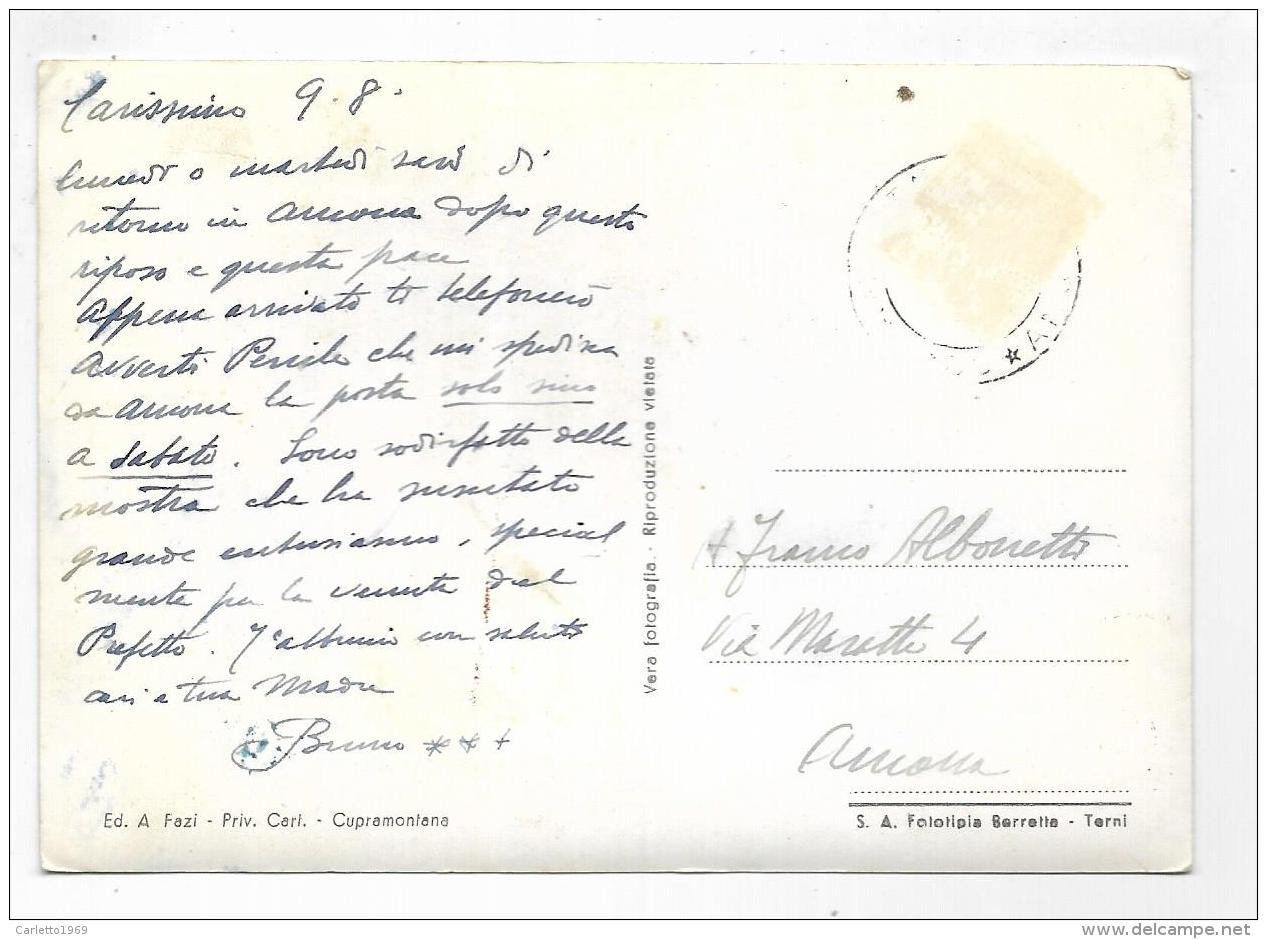 Carissimo 9.8.
lunedì o martedì sarò di
ritorno in Ancona dopo questo
riposo e questa pace
Appena arrivato ti telefonerò
Avverti che mi spedisca
da Ancona la posta solo sino
a sabato. Sono sodisfatto della
mostra che ha suscitato
grande entusiasmo, special
mente per la venuta del
Prefetto. T'abbraccio con saluti
cari a tua Madre
Bruno
Vera fotografia - Riproduzione vietata
A Franco Albonetti
Via Maratta 4
Ancona
Ed. A Fazi - Priv. Cart. - Cupramontana
S. A. Fototipia Berretta - Terni
Carletto1969
delcampe.net